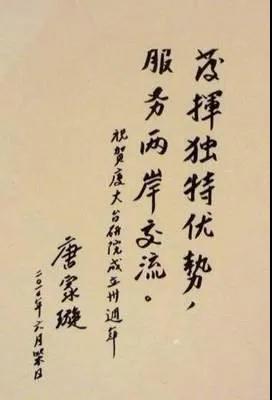 发揮独特优勢，
服务两岸交流。
祝賀厦大台研院成立卅週年
唐家璇
二〇一〇年六月 日